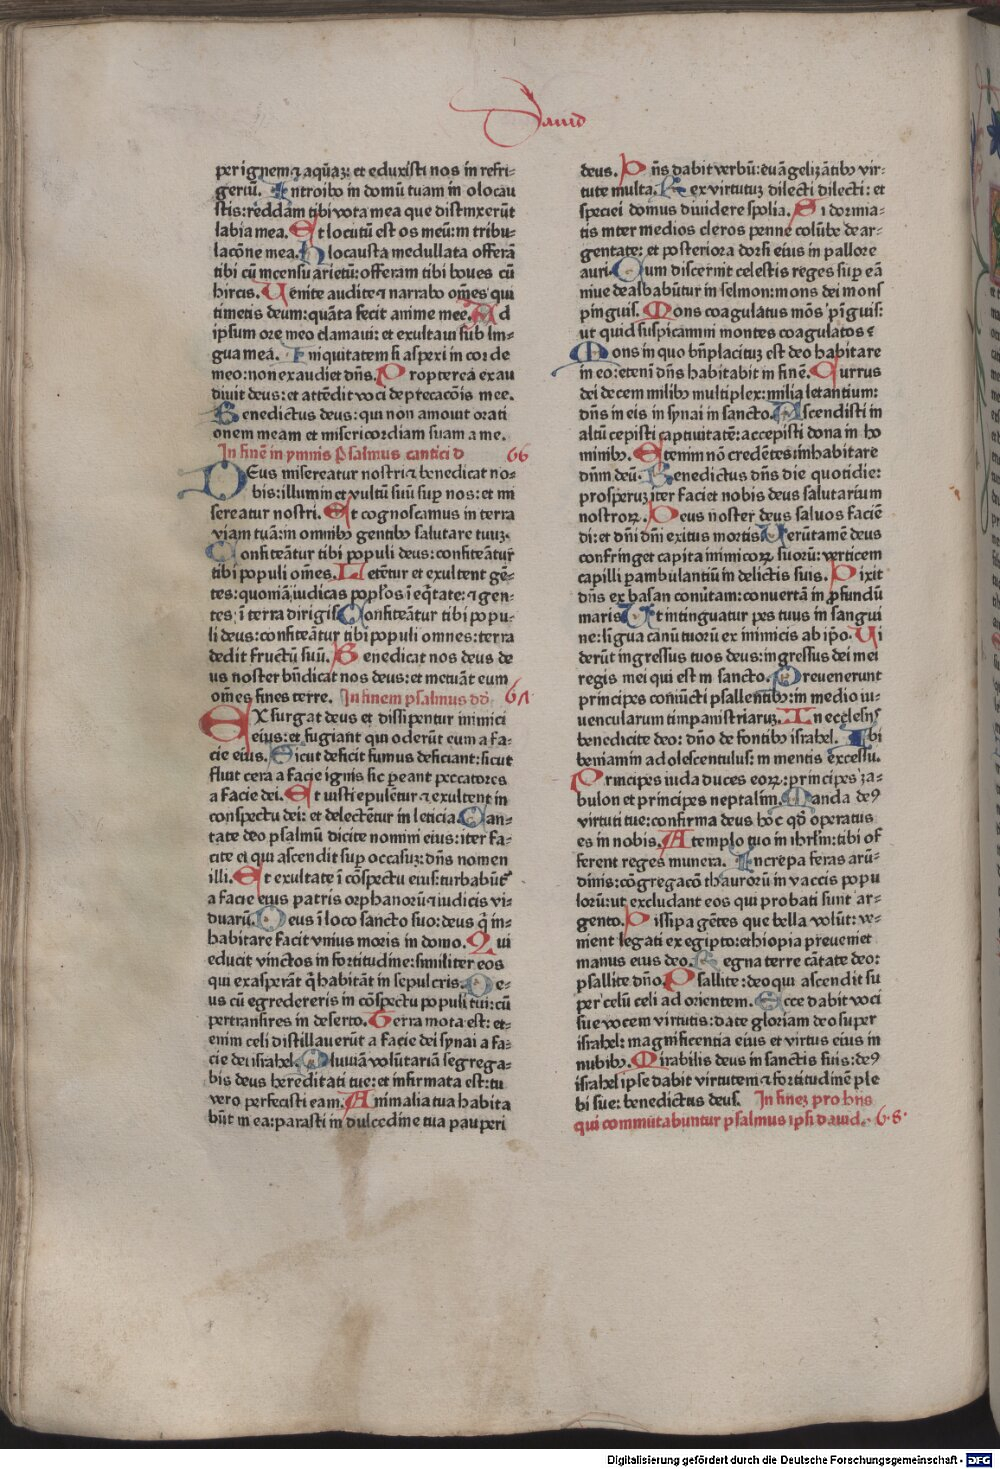 Dauid
per ignem ⁊ aquã: et eduxisti nos in refri⸗
geriũ. Introibo in domũ tuam in olocau
stis: reddam tibi vota mea que distinxerũt
labia mea. Et locutũ est os meũ: in tribu⸗
lacõne mea. Holocausta medullata offerã
tibi cũ incensu arietũ: offeram tibi boues cũ
hircis. Uenite audite ⁊ narrabo om̃es qui
timetis deum: quãta fecit anime mee. Ad
ipsum ore meo clamaui: et exultaui sub lin⸗
gua mea. Iniquitatem si aspexi in corde
meo: non exaudiet dñs. Propterea exau
diuit deus: et attẽdit voci deprecacõis mee.
Benedictus deus: qui non amouit orati
onem meam et misericordiam suam a me.
In finẽ in ymnis Psalmus cantici d 66
DEus misereatur nostri ⁊ benedicat no⸗
bis: illuminet vultũ suũ sup nos: et mi
sereatur nostri. Et cognoscamus in terra
viam tuã: in omnibꝰ gentibꝰ salutare tuuz.
Confiteãtur tibi populi deus: confiteãtur
tibi populi om̃es. Letẽtur et exultent gẽ⸗
tes: quoniã iudicas poplos ĩ eq̃tate: ⁊ gen⸗
tes ĩ terra dirigis. Confiteãtur tibi popu⸗
li deus: confiteãtur tibi populi omnes: terra
dedit fructũ suũ. Benedicat nos deus de
us noster bñdicat nos deus: et metuãt eum
om̃es fines terre. In finem psalmus dd 67
EXsurgat deus et dissipentur inimici
eius: et fugiant qui oderũt eum a fa⸗
cie eius. Sicut deficit fumus deficiant: sicut
fluit cera a facie ignis sic pereant peccatores
a facie dei. Et iusti epulẽtur ⁊ exultent in
conspectu dei: et delectẽtur in leticia. Can⸗
tate deo psalmũ dicite nomini eius: iter fa⸗
cite ei qui ascendit sup occasuz: dñs nomen
illi. Et exultate ĩ cõspectu eius: turbabũt̃
a facie eius patris orphanorũ ⁊ iudicis vi⸗
duarũ. Deus ĩ loco sancto suo: deus q̃ in⸗
habitare facit vnius moris in domo. Qui
educit vinctos in fortitudine: similiter eos
qui exasperãt q̃ habitãt in sepulcris. De⸗
us cũ egredereris in cõspectu populi tui: cũ
pertransires in deserto. Terra mota est: et⸗
enim celi distillauerũt a facie dei synai a fa⸗
cie dei israhel. Pluuiã volũtariã segrega⸗
bis deus hereditati tue: et infirmata est: tu
vero perfecisti eam. Animalia tua habita
bũt in ea: parasti in dulcedine tua pauperi
deus. Dñs dabit verbũ: euãgelizãtibꝰ vir⸗
tute multa. Rex virtutuz dilecti dilecti: et
speciei domus diuidere spolia. Si dormia⸗
tis inter medios cleros penne colũbe dear⸗
gentate: et posteriora dorsi eius in pallore
auri. Dum discernit celestis reges sup eã
niue dealbabũtur in selmon: mons dei mons
pinguis. Mons coagulatus mõs p̃iguis:
ut quid suspicamini montes coagulatos?
Mons in quo bñplacituz est deo habitare
in eo: eteni dñs habitabit in finẽ. Currus
dei decem milibꝰ multiplex: milia letantium:
dñs in eis in synai in sancto. Ascendisti in
altũ cepisti captiuitatẽ: accepisti dona in ho
minibꝰ. Etenim nõ credẽtes inhabitare
dñm deũ. Benedictus dñs die quotidie:
prosperuz iter faciet nobis deus salutarium
nostroꝝ. Deus noster deus saluos faciẽ
di: et dñi dñi exitus mortis. Uerũtamẽ deus
confringet capita inimicoꝝ suorũ: verticem
capilli perambulantiũ in delictis suis. Dixit
dñs ex basan conũtam: conuertã in profundũ
maris. Ut intinguatur pes tuus in sangui
ne: ligua canũ tuorũ ex inimicis ab ip̃o. Ui
derũt ingressus tuos deus: ingressus dei mei
regis mei qui est in sancto. Preuenerunt
principes coniũcti psallentibꝰ: in medio iu⸗
uencularum timpanistriaruz. In ecclesijs
benedicite deo: dño de fontibꝰ israhel. Ibi
beniamin adolescentulus: in mentis excessu.
Principes iuda duces eoꝝ: principes za⸗
bulon et principes neptalim. Manda deꝰ
virtuti tue: confirma deus hoc qd operatus
es in nobis. A templo tuo in ihrl̃m: tibi of
ferent reges munera. Increpa feras arũ⸗
dinis: cõgregacõ thaurorũ in vaccis popu
lorũ: ut excludant eos qui probati sunt ar⸗
gento. Dissipa gẽtes que bella volũt: ve⸗
nient legati ex egipto: ethiopia preueniet
manus eius deo. Regna terre cãtate deo:
psallite dño. Psallite: deo qui ascendit su
per celũ celi ad orientem. Ecce dabit voci
sue vocem virtutis: date gloriam deo super
israhel: magnificentia eius et virtus eius in
nubibꝰ. Mirabilis deus in sanctis suis: deꝰ
israhel ipse dabit virtutem ⁊ fortitudinẽ ple
bi sue: benedictus deus. In finez pro hijs
qui commutabuntur psalmus ipsi dauid. 68
Digitalisierung gefördert durch die Deutsche Forschungsgemeinschaft - DFG